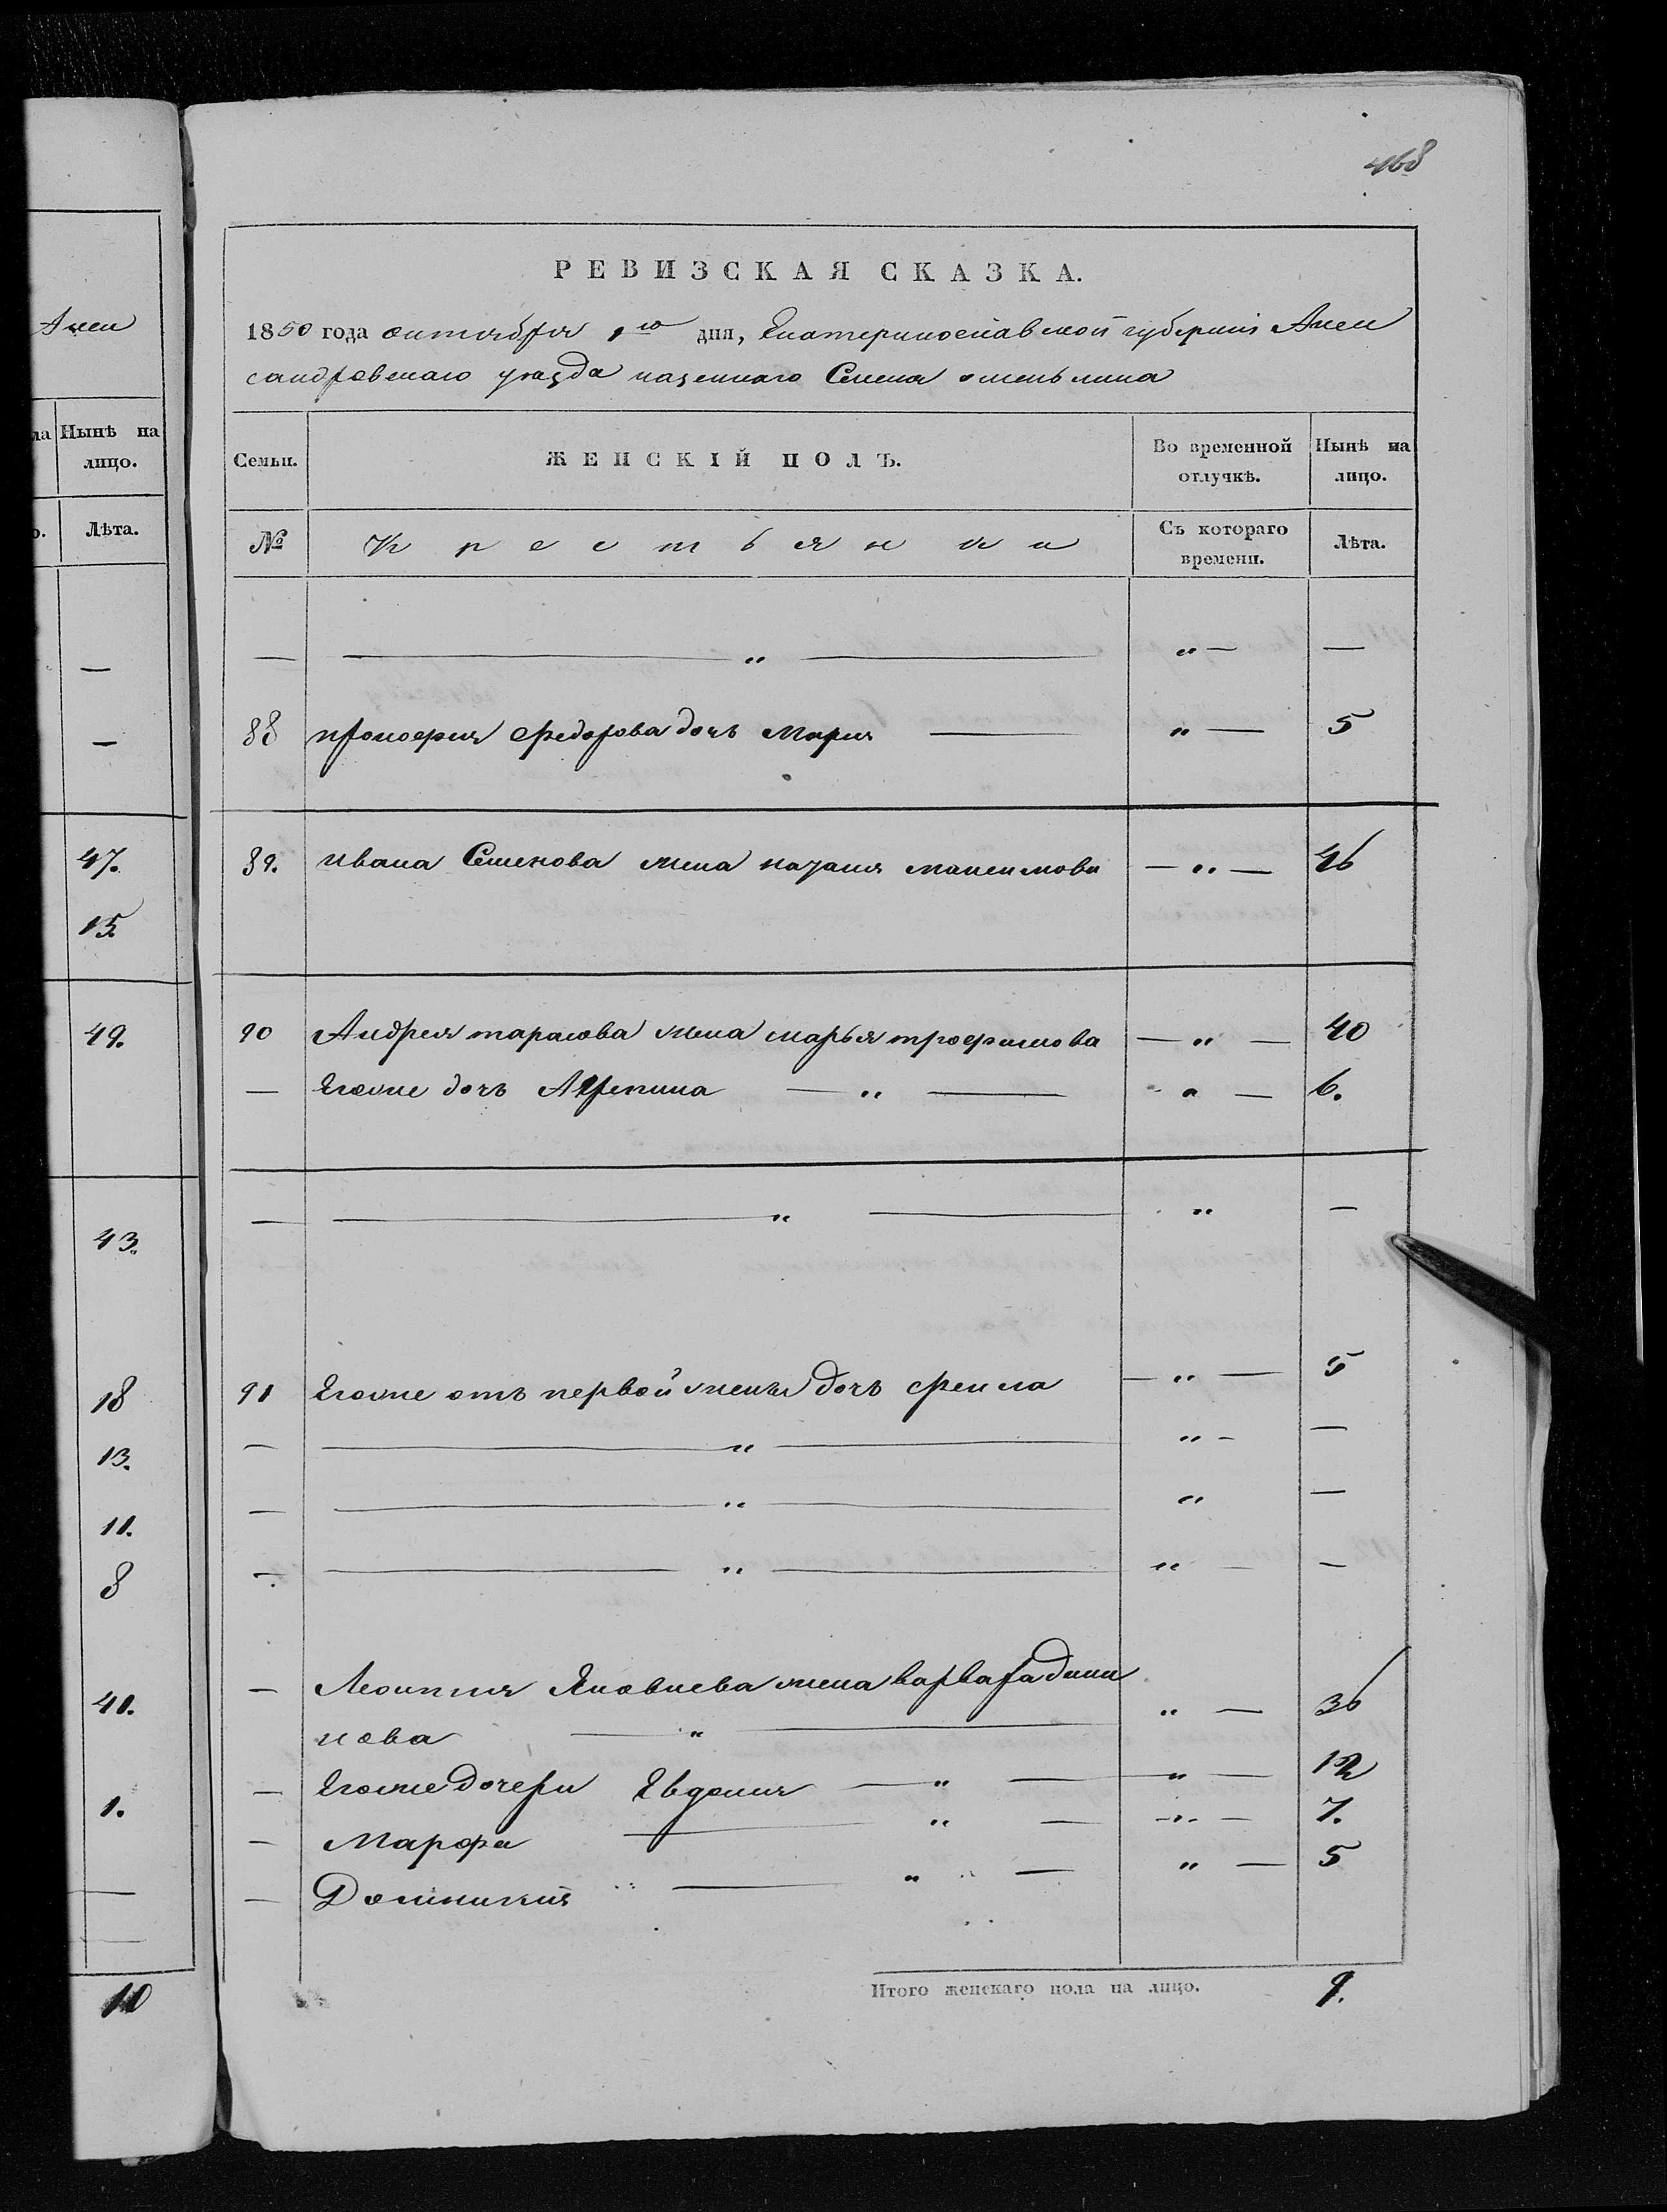 Алек
ла Нынѣ на
лицо.
о. Лѣта.
—
—
47.
15.
49.
43.
18
13.
11.
8
41.
1.
10
468
РЕВИЗСКАЯ СКАЗКА.
1850 года октября 1го дня, Екатеринославской губерніи Алек
сандровскаго уезда казеннаго Селена омельника
Семьи. ЖЕНСКІЙ ПОЛЪ. Во временной отлучкѣ. Нынѣ на лицо.
№ Крестьянки Съ котораго времени. Лѣта.
— — „ — „ — —
88 прокофия Федорова дочъ Мария — „ — 5
89. ивана Семенова жена казаня максимова — „ — 46
90 Андрея тарасова жена марья трофимова — „ — 40
— Егоже дочъ Агрепина — „ — „ — 6.
— — „ — „ —
91 Егоже отъ первой жены дочъ фекла — „ — 5
— — „ — „ — —
— — „ — „ —
— — „ — „ — —
— Леонтия Яковлева жена варвара дани
лова — „ — „ — 36
— Егоже дочери Евдокия — „ — — „ — 12
— Марфа — „ — — „ — 7.
— Домникия — „ — „ — 5
Итого женскаго пола на лицо. 9.